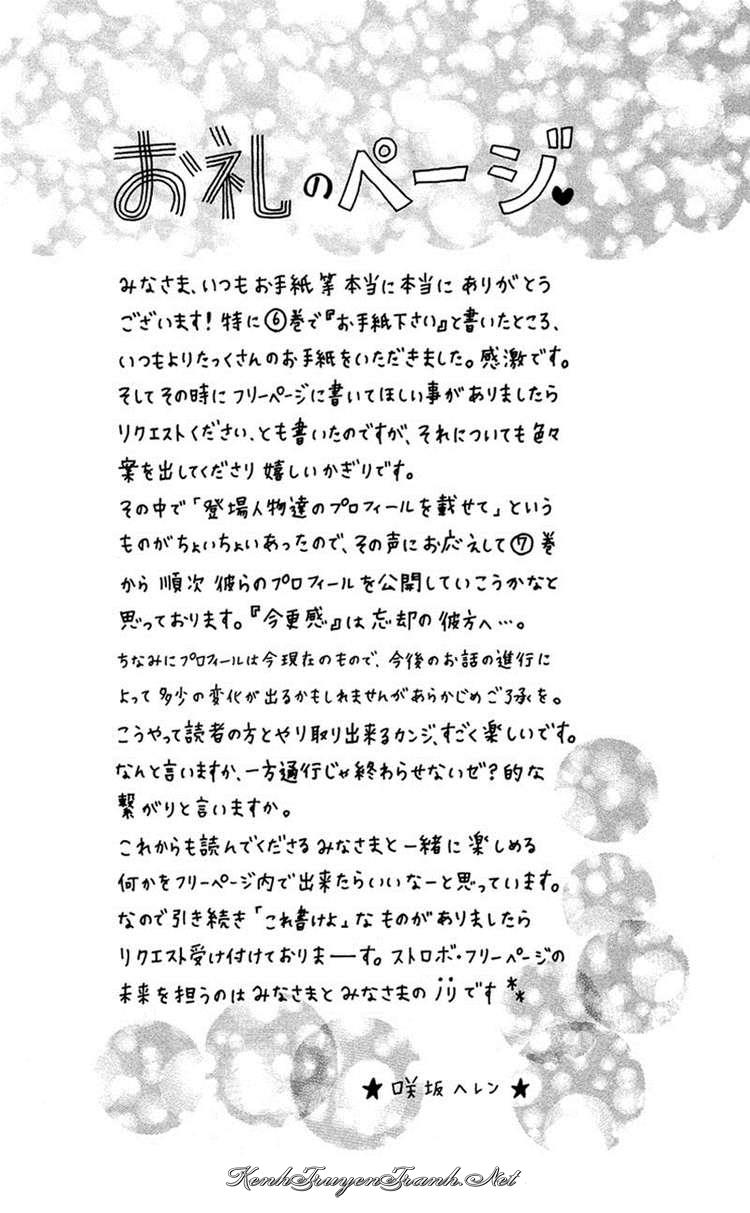 お礼のページ♥
みなさま、いつもお手紙等本当に本当にありがとう
ございます!特に⑥巻で『お手紙下さい』と書いたところ、
いつもよりたっくさんのお手紙をいただきました。感激です。
そしてその時にフリーページに書いてほしい事がありましたら
リクエストください、とも書いたのですが、それについても色々
案を出してくださり嬉しいかぎりです。
その中で「登場人物達のプロフィールを載せて」という
ものがちょいちょいあったので、その声にお応えして⑦巻
から順次彼らのプロフィールを公開していこうかなと
思っております。『今更感』は忘却の彼方へ…。
ちなみにプロフィールは今現在のもので、今後のお話の進行に
よって多少の変化が出るかもしれませんがあらかじめご了承を。
こうやって読者の方とやり取り出来るカンジ、すごく楽しいです。
なんと言いますか、一方通行じゃ終わらせないゼ?的な
繋がりと言いますか。
これからも読んでくださるみなさまと一緒に楽しめる
何かをフリーページ内で出来たらいいなーと思っています。
なので引き続き「これ書けよ」なものがありましたら
リクエスト受け付けておりまーす。ストロボ・フリーページの
未来を担うのはみなさまとみなさまのノリです**
★咲坂ヘレン★
KenhTruyenTranh.Net